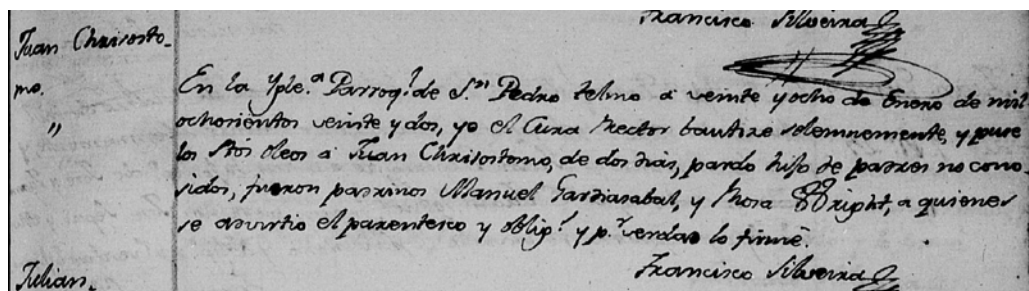 Francisco Silveira
Juan Chrisosto-
mo.
"
En la Ygle.ª Parroq.l de S.n Pedro telmo a veinte y ocho de Enero de mil
ochosientos veinte y dos, yo el Cura Rector bautize solemnemente, y puse
los Stos oleos a Juan Chrisostomo, de dos dias, pardo hijo de padres no cono-
sidos, fueron padrinos Manuel Gardiasabal, y Rosa Wright, a quienes
se advirtio el parentesco y oblig.s y p.r verdad lo firmé.
Francisco Silveira
Julian.